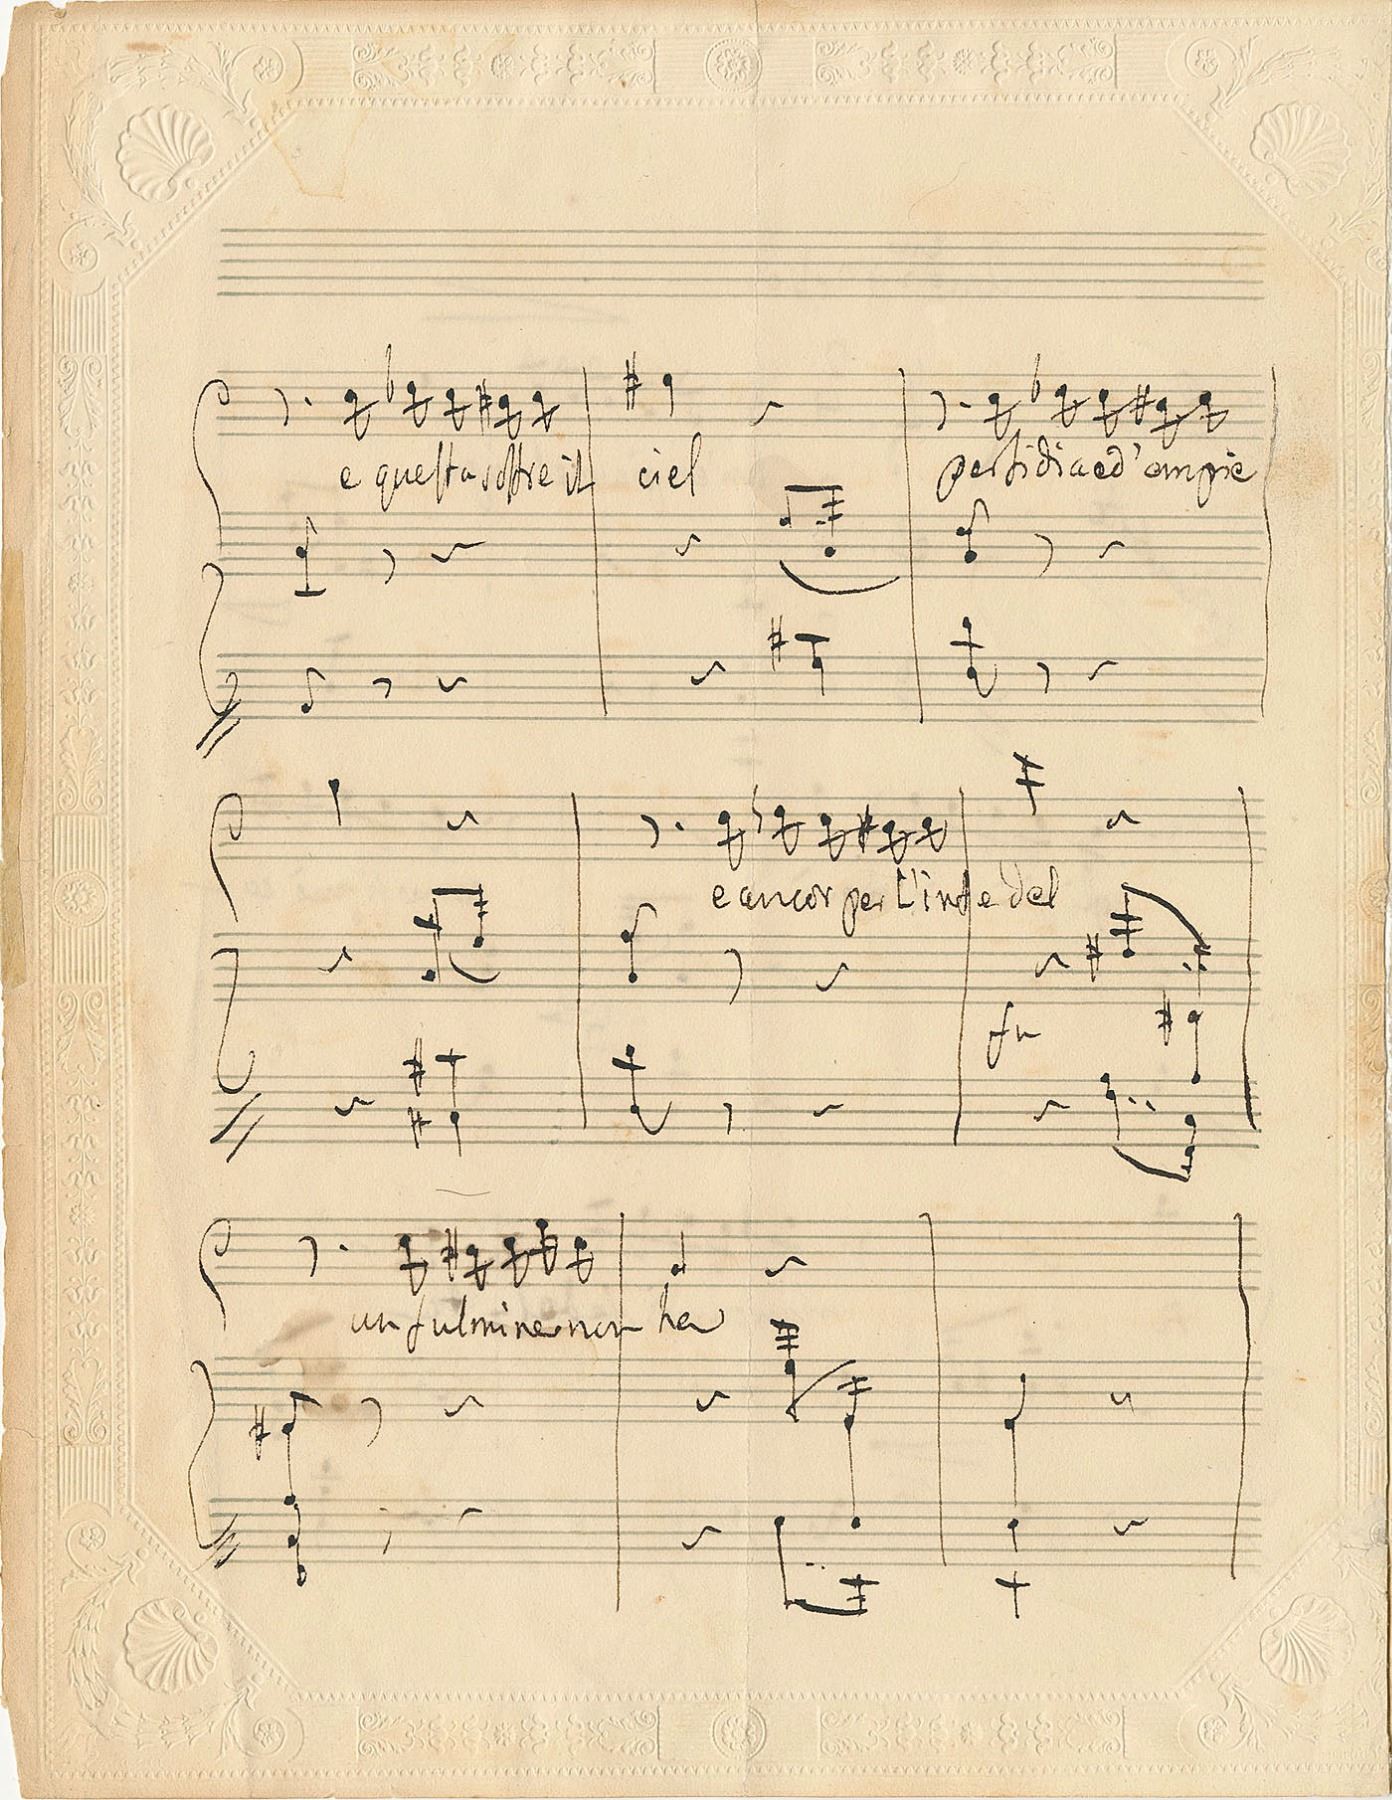 e questa soffre il ciel
perfidia ed' empie
e ancor per l'infedel
un fulmine non ha